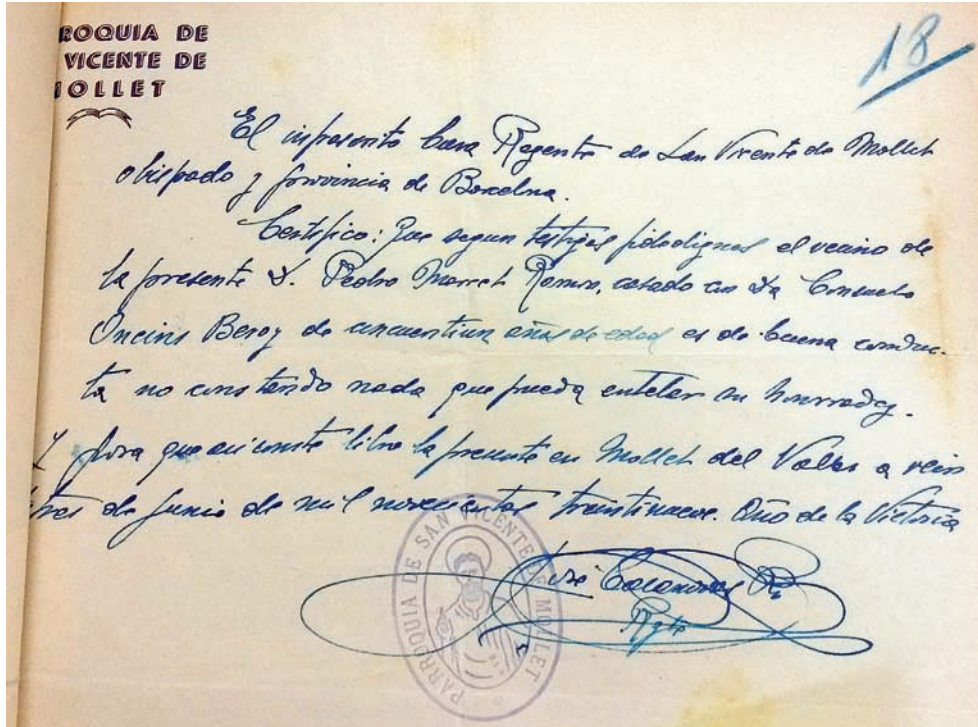 ROQUIA DE
VICENTE DE
MOLLET
18
El infrascrito Cura Regente de San Vicente de Mollet
obispado y provincia de Barcelona.
Certifico: Que segun testigos fidedignos el vecino de
la presente D. Pedro Marcet Romeo, casado con Da Consuelo
Oncins Beroy de cincuentiun años de edad es de buena conduc-
ta no constando nada que pueda entelar su honrradez.
Y para que asi conste libro la presente en Mollet del Valles a vein
titres de junio de mil novecientos treintinueve. Año de la Victoria
José Casanovas
Rgte
PARROQUIA DE SAN VICENTE DE MOLLET